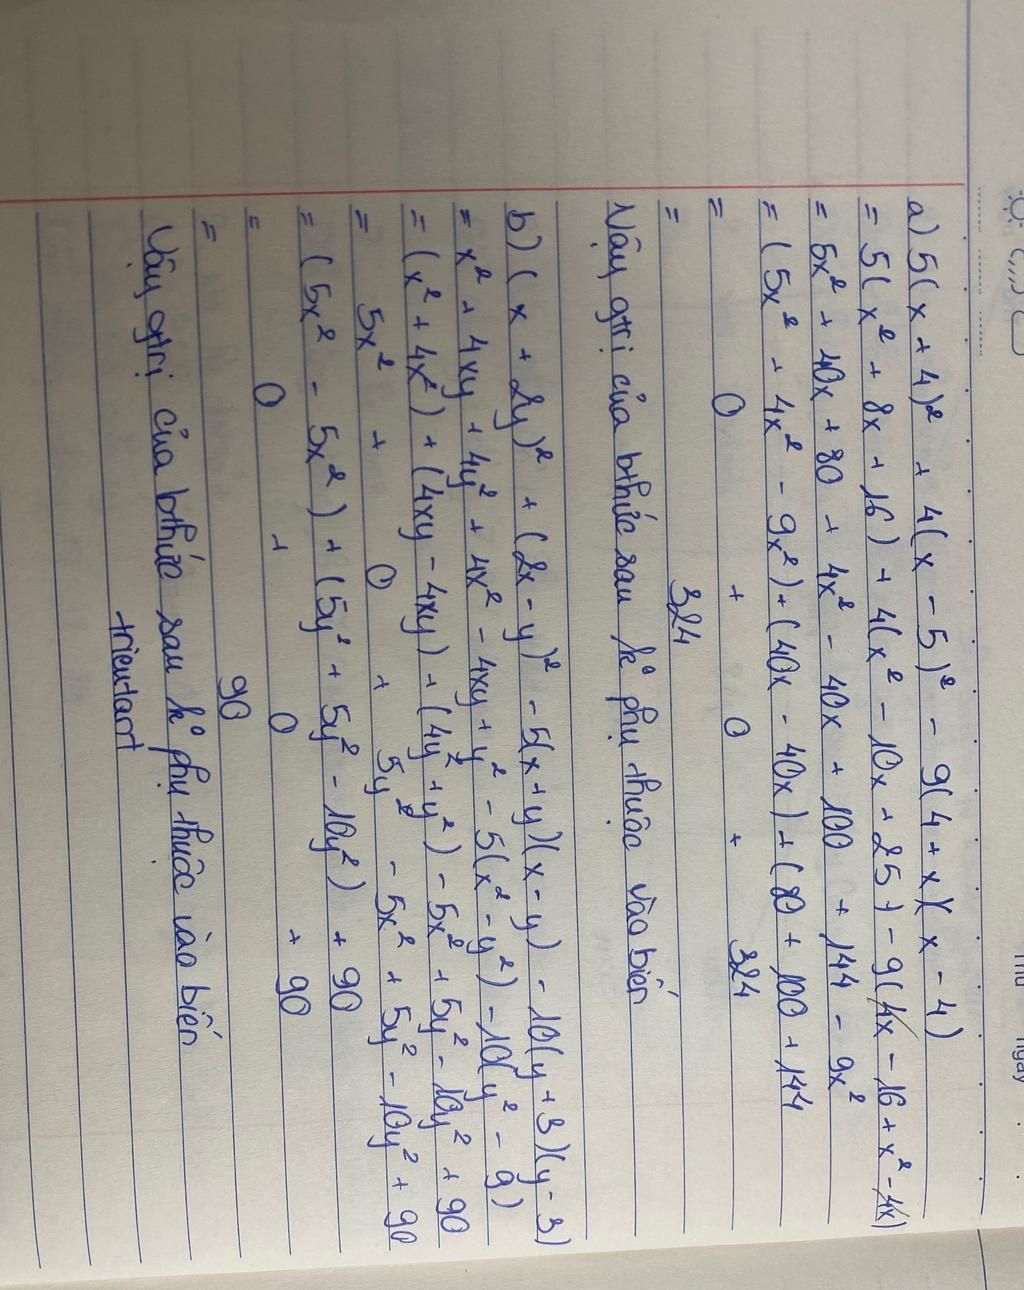 Thứ ngày
a) 5(x + 4)² + 4(x - 5)² - 9(4 + x)(x - 4)
= 5(x² + 8x + 16) + 4(x² - 10x + 25) - 9(4x - 16 + x² - 4x)
= 5x² + 40x + 80 + 4x² - 40x + 100 + 144 - 9x²
= (5x² + 4x² - 9x²) + (40x - 40x) + (80 + 100 + 144
= 0 + 0 + 324
= 324
Vậy gtrị của bthức sau k° phụ thuộc vào biến
b) (x + 2y)² + (2x - y)² - 5(x + y)(x - y) - 10(y + 3)(y - 3)
= x² + 4xy + 4y² + 4x² - 4xy + y² - 5(x² - y²) - 10(y² - 9)
= (x² + 4x²) + (4xy - 4xy) + (4y² + y²) - 5x² + 5y² - 10y² + 90
= 5x² + 0 + 5y² - 5x² + 5y² - 10y² + 90
= (5x² - 5x²) + (5y² + 5y² - 10y²) + 90
= 0 + 0 + 90
= 90
Vậy gtrị của bthức sau k° phụ thuộc vào biến
trieutart